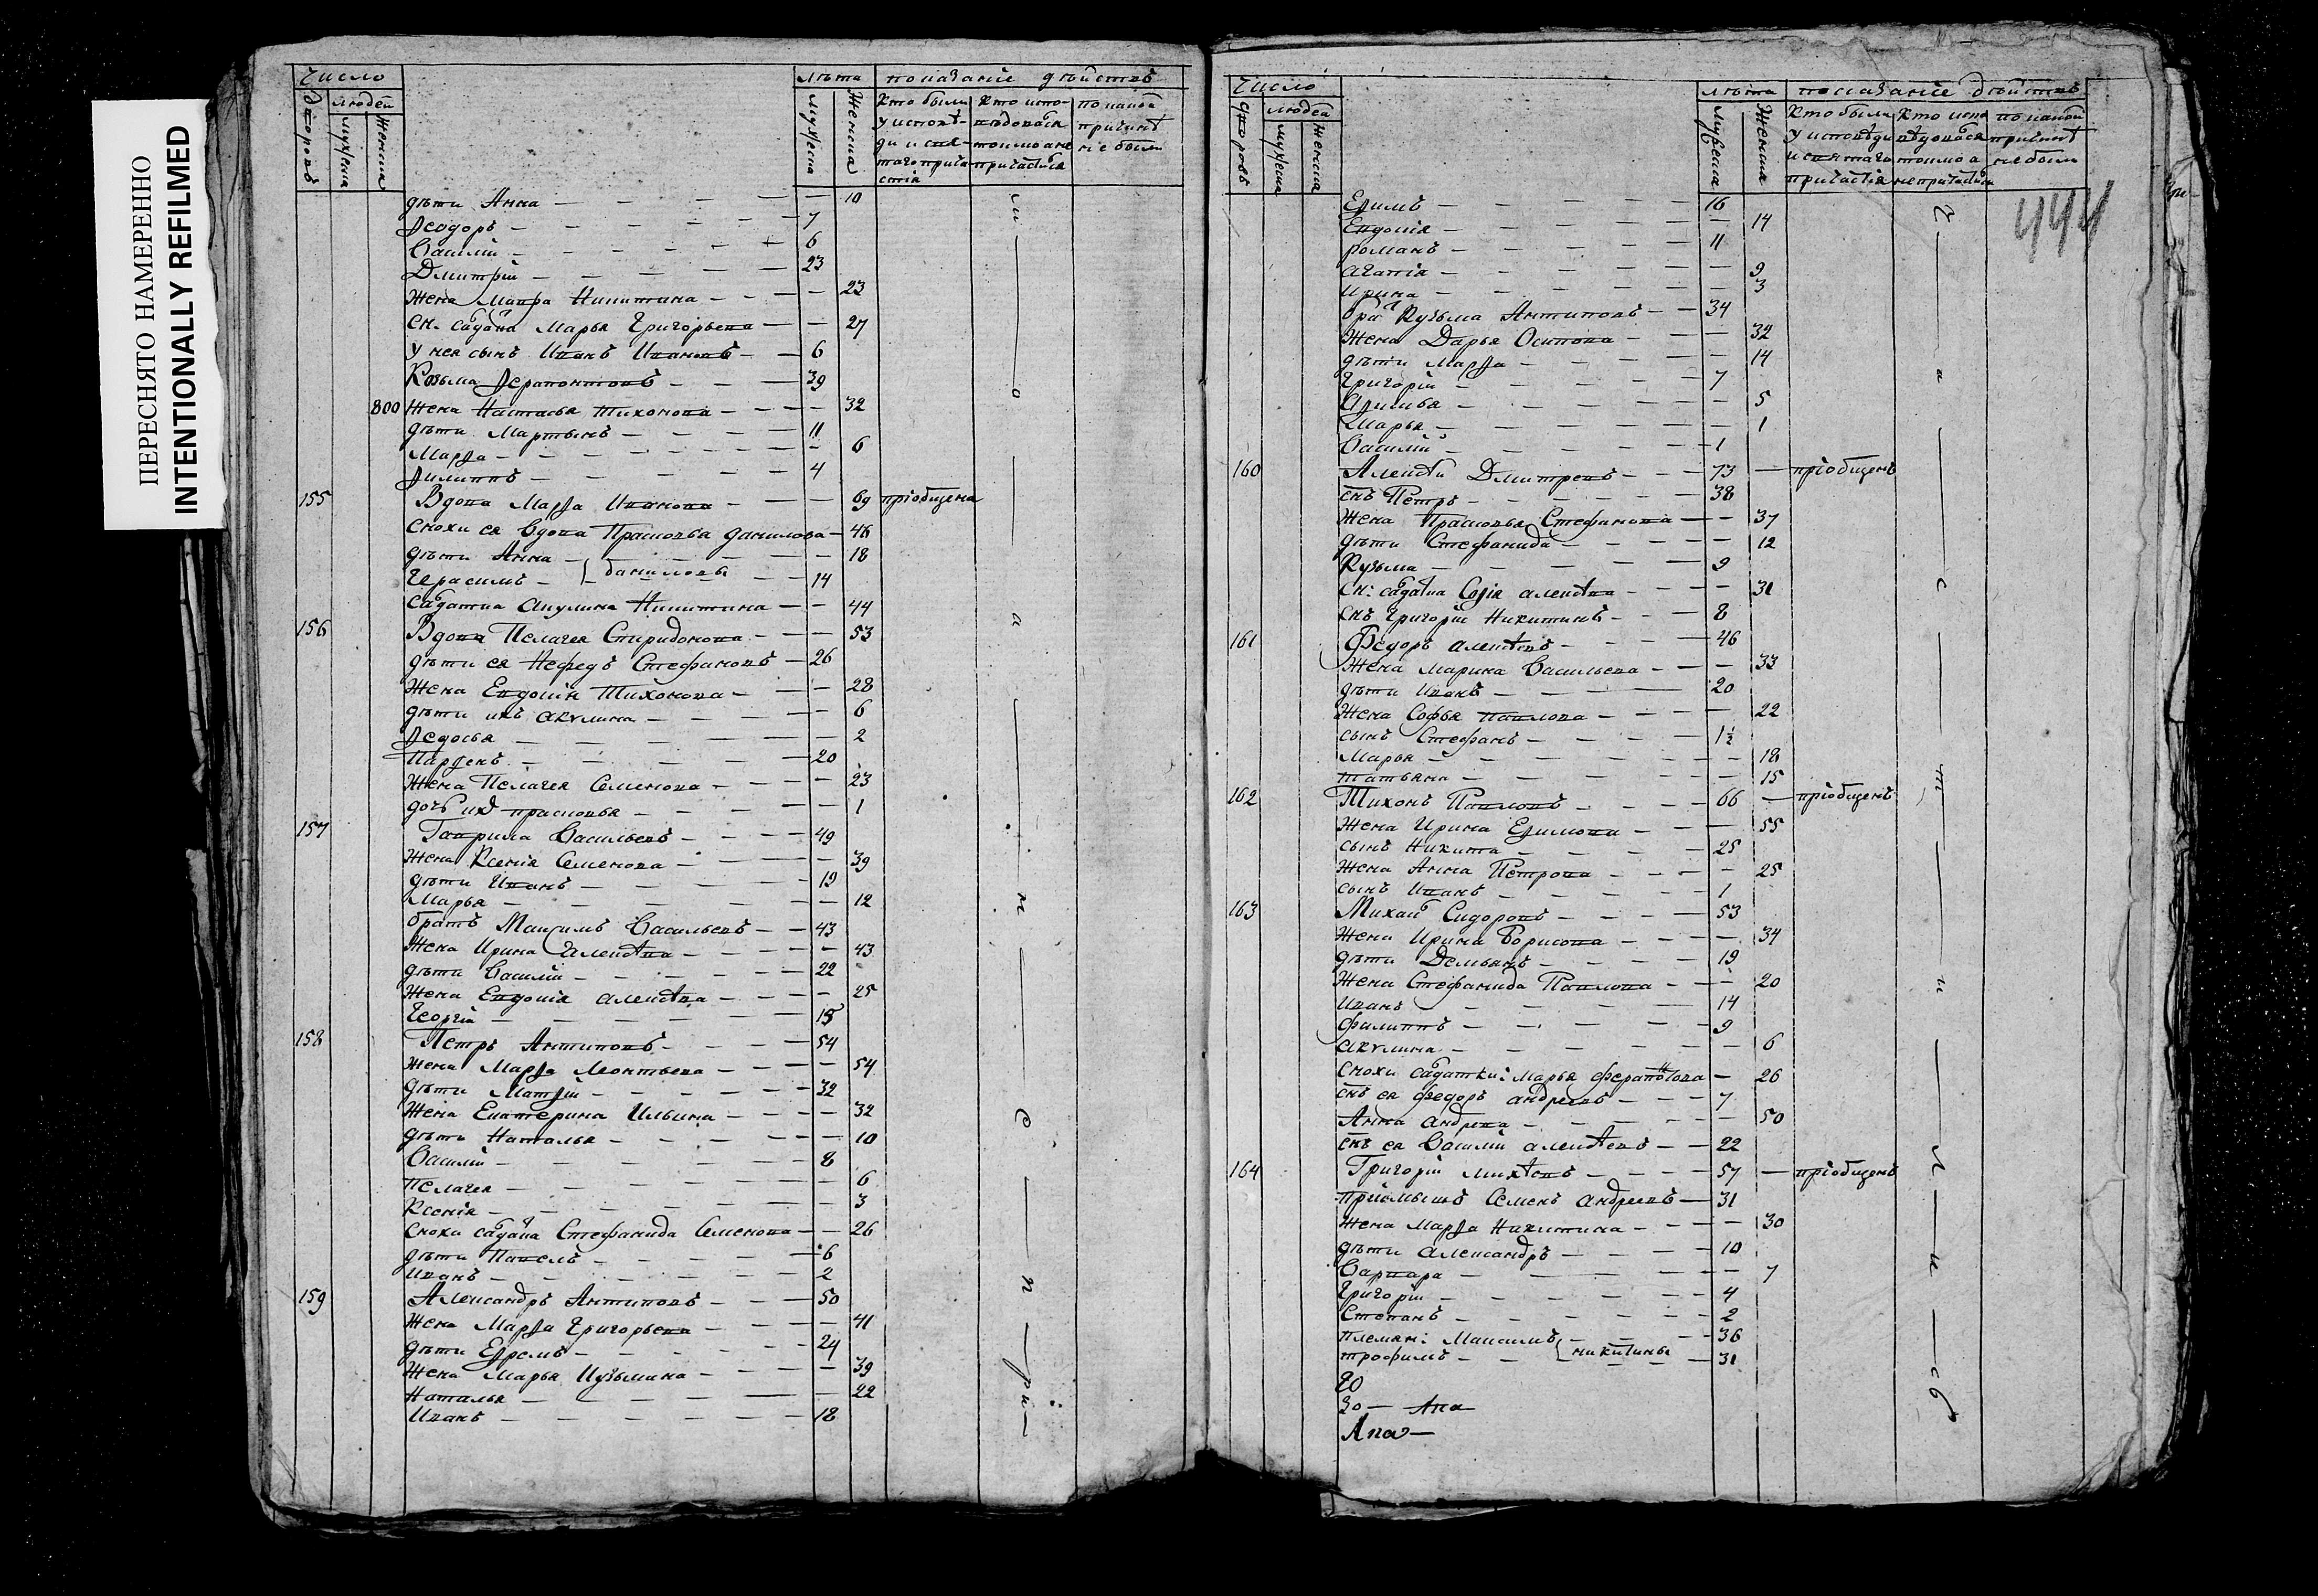 ПЕРЕСНЯТО НАМЕРЕННО
INTENTIONALLY REFILMED
Число
людей
дворовъ
мужска
женска
лѣта
мужска
женска
показаніе дѣйствъ
Кто были у исповѣди и святаго причастія
Кто исповѣдовался токмо а не причастился
по какой причинѣ не были
дѣти Анна — 10
Ѳеодоръ — 7
Василій — 6
Дмитрій — 23
жена Мавра Никитина — 23
Сн. салдатка Марья Григорьева — 27
у нея сынъ Иванъ Ивановъ — 6
Козьма Ѳерапонтовъ — 39
800 жена Настасья Тихонова — 32
дѣти Мартынъ — 11
Марѳа — 6
Ѳилиппъ — 4
155 Вдова Марѳа Иванова — 69 пріобщена
снохи ея Вдова Прасковья данилова — 48
дѣти Анна — 18
Герасимъ — 14
салдатка Акулина Никитина — 44
156 Вдова Пелагея Спиридонова — 53
дѣти ея Нефедъ Стефановъ — 26
жена Евдокія Тихонова — 28
дѣти ихъ акулина — 6
Ѳедосья — 2
Парѳенъ — 20
жена Пелагея Семенова — 23
дочь ихъ прасковья — 1
157 Гаврила Васильевъ — 49
жена Ксенія Семенова — 39
дѣти Иванъ — 19
Марья — 12
братъ Максимъ Васильевъ — 43
жена Ирина Алексѣева — 43
дѣти Василій — 22
жена Евдокія алексѣева — 25
Георгій — 15
158 Петръ Антиповъ — 54
жена Марѳа Леонтьева — 54
дѣти Матѳій — 32
жена Екатерина Ильина — 32
дѣти Наталья — 10
Василій — 8
Пелагея — 6
Ксенія — 3
снохи салдатка Стефанида Семенова — 26
дѣти Павелъ — 6
Иванъ — 2
159 Александръ Антиповъ — 50
жена Марѳа Григорьева — 41
дѣти Ефремъ — 24
жена Марья Кузьмина — 39
Наталья — 22
Иванъ — 18
Число
людей
дворовъ
мужска
женска
лѣта
мужска
женска
показаніе дѣйствъ
Кто были у исповѣди и святаго причастія
Кто исповѣдовался токмо а не причастился
по какой причинѣ не были
444
Ефимъ — 16
Евдокія — 14
романъ — 11
агапія — 9
ирина — 3
братъ Кузьма Антиповъ — 34
жена Дарья Осипова — 32
дѣти Марѳа — 14
Григорій — 7
— 5
Марья — 1
Василій — 1
160 Алексѣй Дмитревъ — 73 — пріобщенъ
снъ Петръ — 38
жена Прасковья Стефанова — 37
дѣти Стефанида — 12
Кузьма — 9
Сн: салдатка Софія алексѣева — 31
снъ Григорій Никитинъ — 8
161 Федоръ алексѣевъ — 46
жена Марина Васильева — 33
дѣти Иванъ — 20
жена Софья павлова — 22
сынъ Стефанъ — 1½
Марья — 18
татьяна — 15
162 Тихонъ Павловъ — 66 — пріобщенъ
жена Ирина Ефимова — 55
сынъ Никита — 25
жена Анна Петрова — 25
сынъ Иванъ — 1
163 Михайло Сидоровъ — 53
жена Ирина Борисова — 34
дѣти Демьянъ — 19
жена Стефанида Павлова — 20
Иванъ — 14
филиппъ — 9
акулина — 6
снохи салдатки: Марья ферапонтова — 26
снъ ея федоръ андреевъ — 7
Анна андреева — 50
снъ ея Василій алексѣевъ — 22
164 Григорій Михѣевъ — 57 — пріобщенъ
пріемышъ Семенъ андреевъ — 31
жена Марѳа Никитина — 30
дѣти александръ — 10
Варвара — 7
Григорій — 4
Степанъ — 2
племян: Максимъ — 36
трофимъ — никитины — 31